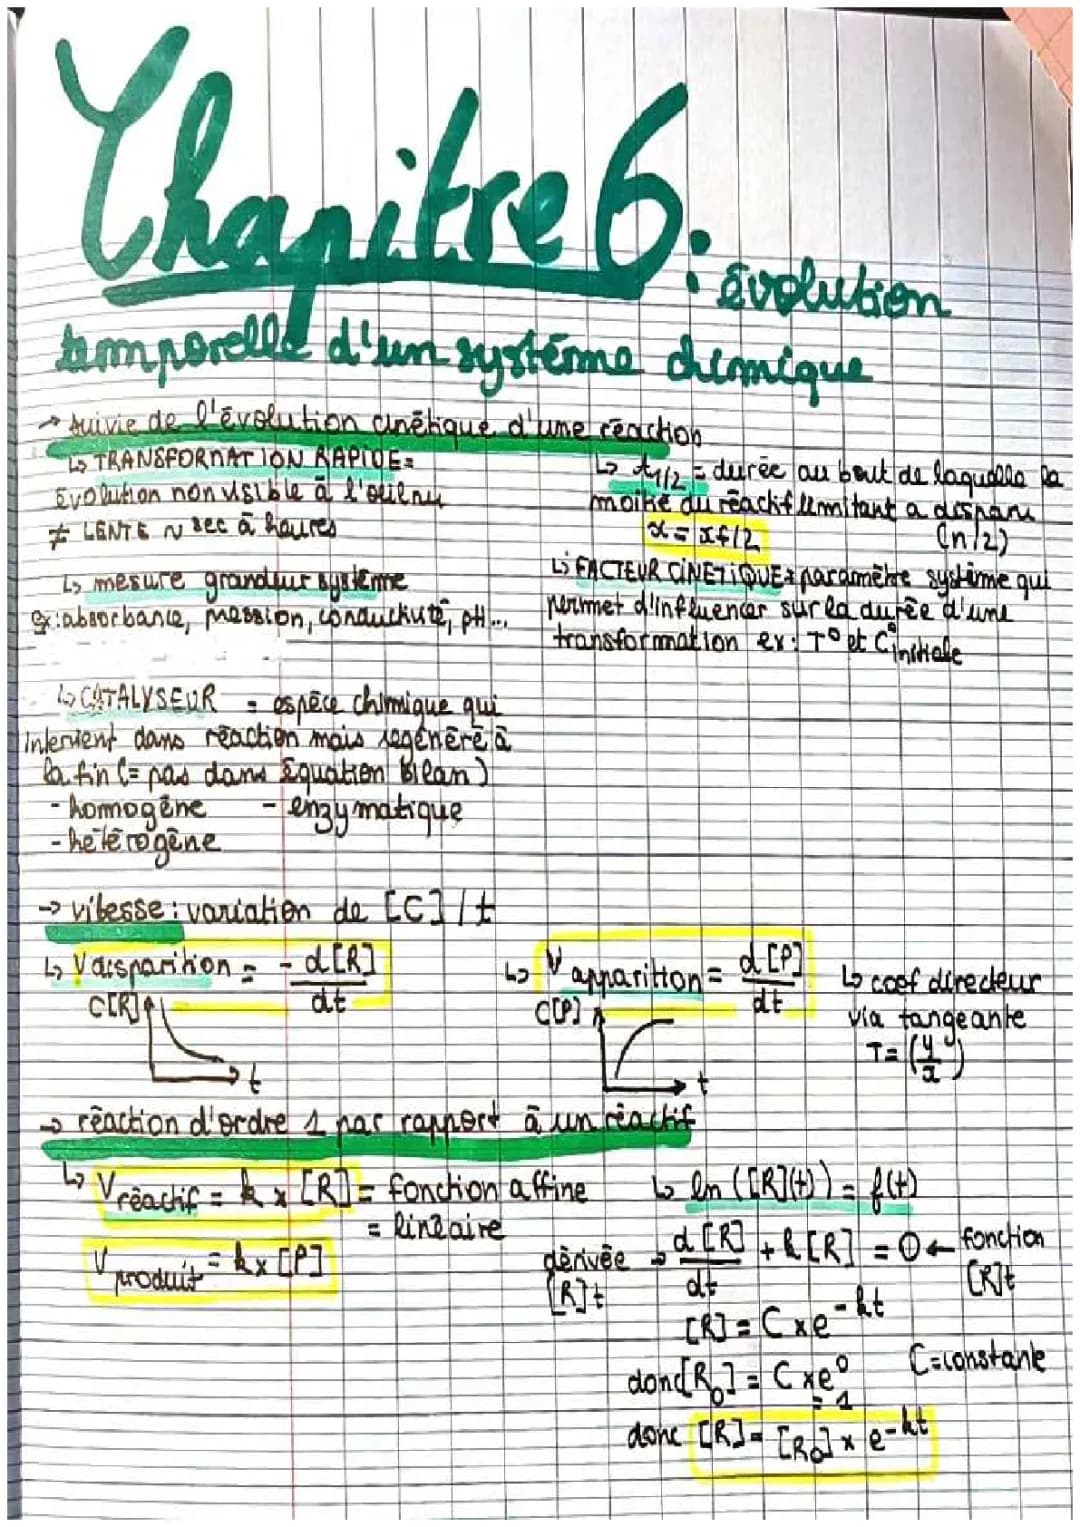 Chapitre 6: évolution
temporelle d'un système chimique
→ suivie de l'évolution cinétique d'une réaction
↳ TRANSFORMATION RAPIDE =
Évolution non visible à l'œil nu
≠ LENTE ~ sec à heures
↳ mesure grandeur système
ex: absorbance, pression, conductivité, pH...
↳ t1/2 = durée au bout de laquelle la
moitié du réactif limitant a disparu
x = xf/2 (n/2)
↳ FACTEUR CINETIQUE = paramètre système qui
permet d'influencer sur la durée d'une
transformation ex: T° et C° initiale
↳ CATALYSEUR = espèce chimique qui
intervient dans réaction mais régénéré à
la fin (= pas dans Équation Bilan)
- homogène - enzymatique
- hétérogène
→ vitesse : variation de [C] / t
↳ V disparition = - d[R]/dt
C[R]
t
↳ V apparition = d[P]/dt
C[P]
t
↳ coef directeur
via tangeante
T = (y/x)
→ réaction d'ordre 1 par rapport à un réactif
↳ V réactif = k x [R] = fonction affine
= linéaire
V produit = k x [P]
↳ ln ([R](t)) = f(t)
dérivée [R]t → d[R]/dt + k[R] = 0 ← fonction [R]t
[R] = C x e^-kt
C = constante
donc [R0] = C x e^0
= 1
donc [R] = [R0] x e^-kt